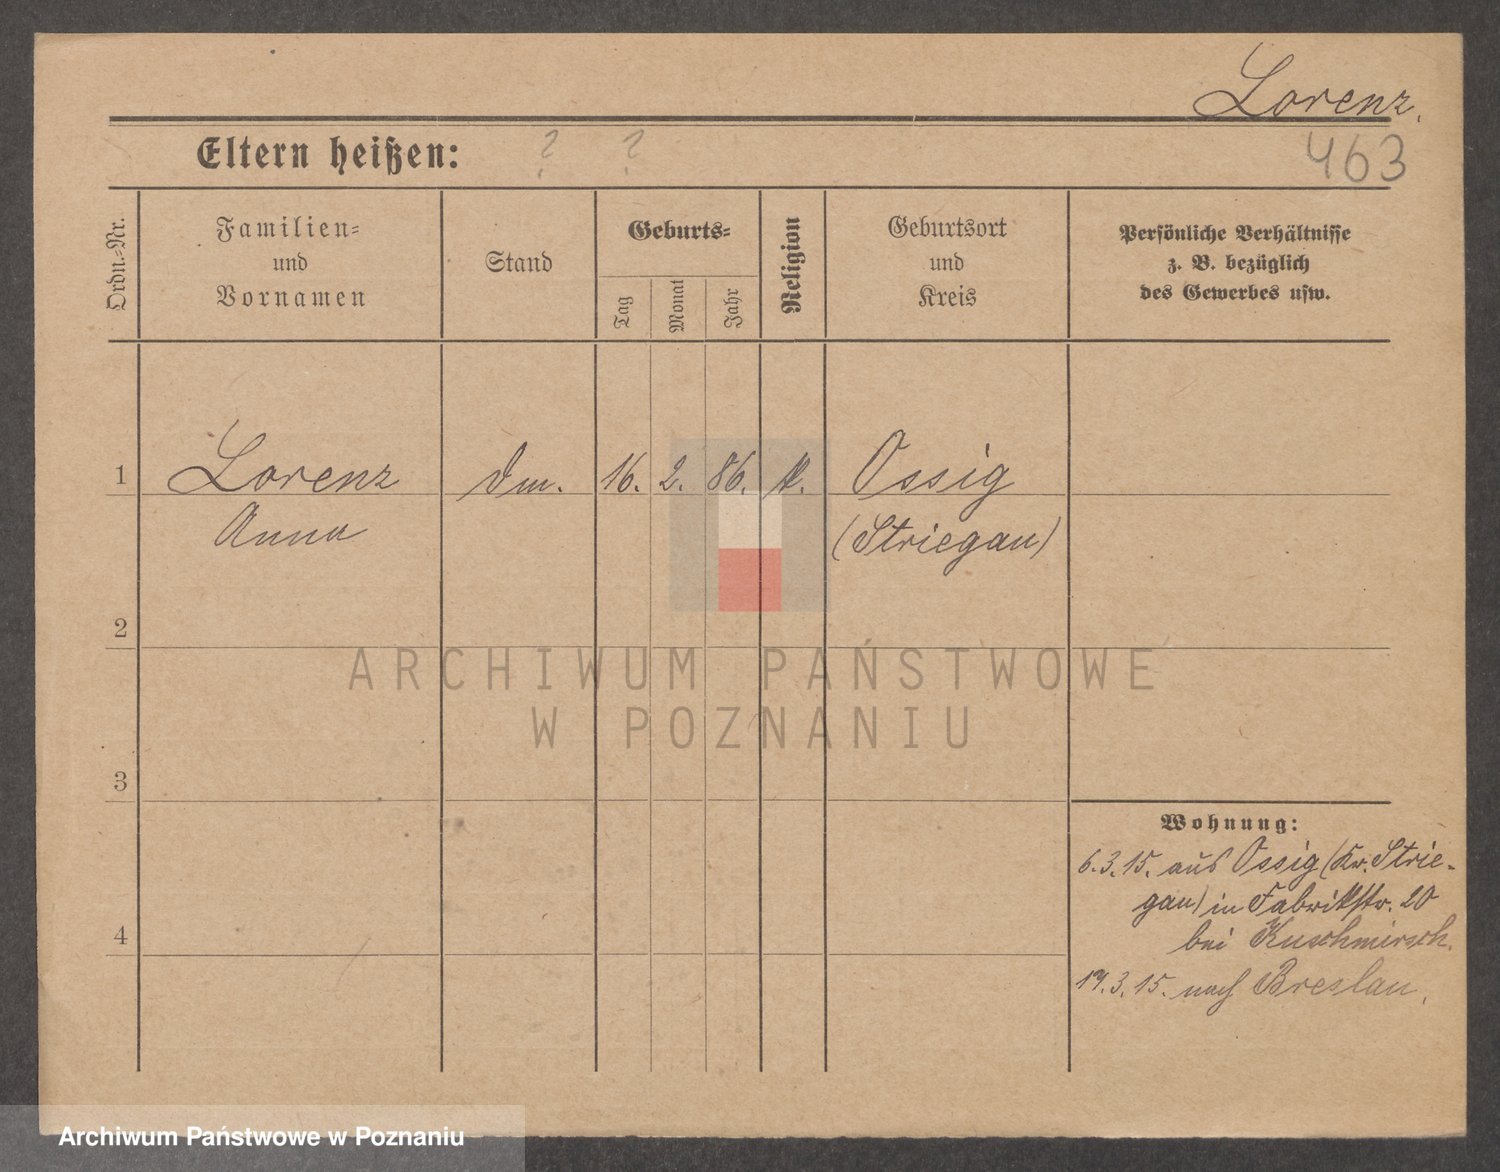 Lorenz.
463
Eltern heißen: ? ?
Ordn.-Nr.
Familien-
und
Vornamen
Stand
Geburts-
Tag
Monat
Jahr
Religion
Geburtsort
und
Kreis
Persönliche Verhältnisse
z. B. bezüglich
des Gewerbes usw.
1 Lorenz Dm. 16. 2. 86. k. Ossig
Anna (Striegau)
2
3
4
Wohnung:
6.3.15. aus Ossig (Kr. Strie-
gau) in Fabrikstr. 20
bei Kuschmirsch.
19.3.15. nach Breslau.
ARCHIWUM PAŃSTWOWE
W POZNANIU
Archiwum Państwowe w Poznaniu